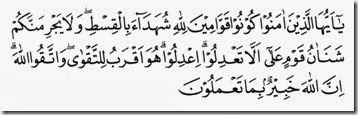 يَٰٓأَيُّهَا الَّذِينَ اٰمَنُوْا كُوْنُوْا قَوَّامِيْنَ لِلّٰهِ شُهَدَاۤءَ بِالْقِسْطِۖ وَلَا يَجْرِمَنَّكُمْ
شَنَاٰنُ قَوْمٍ عَلٰٓى اَلَّا تَعْدِلُوْاۗ اِعْدِلُوْاۗ هُوَ اَقْرَبُ لِلتَّقْوٰىۖ وَاتَّقُوا اللّٰهَۗ
اِنَّ اللّٰهَ خَبِيْرٌۢ بِمَا تَعْمَلُوْنَ